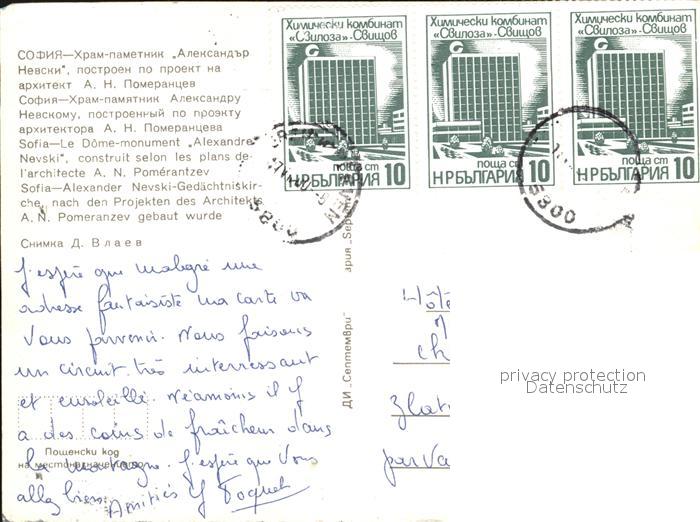 СОФИЯ—Храм-паметник „Александър
Невски", построен по проект на
архитект А. Н. Померанцев
София—Храм-памятник Александру
Невскому, построенный по проэкту
архитектора А. Н. Померанцева
Sofia—Le Dôme-monument „Alexandre
Nevski", construit selon les plans de
l'architecte A. N. Pomérantzev
Sofia—Alexander Nevski-Gedächtniskir-
che, nach den Projekten des Architekts
A. N. Pomeranzev gebaut wurde
Снимка Д. Влаев
J'espère que malgré une
adresse fantaisiste ma carte va
vous parvenir. Nous faisons
un circuit très interressant
et ensoleillé. Néamoins il y
a des coins de fraîcheur dans
la montagne. J'espère que vous
allez bien.
Amitiés
Пощенски код
на местоназначението
ДИ „Септември"
ария „Sep
Химически комбинат
«Свилоза»-Свищов
поща ст
НР БЪЛГАРИЯ 10
Химически комбинат
«Свилоза»-Свищов
поща ст
НР БЪЛГАРИЯ 10
Химически комбинат
«Свилоза»-Свищов
поща ст
НР БЪЛГАРИЯ 10
5300
Hôte
ch
Zlat
par Va
privacy protection
Datenschutz